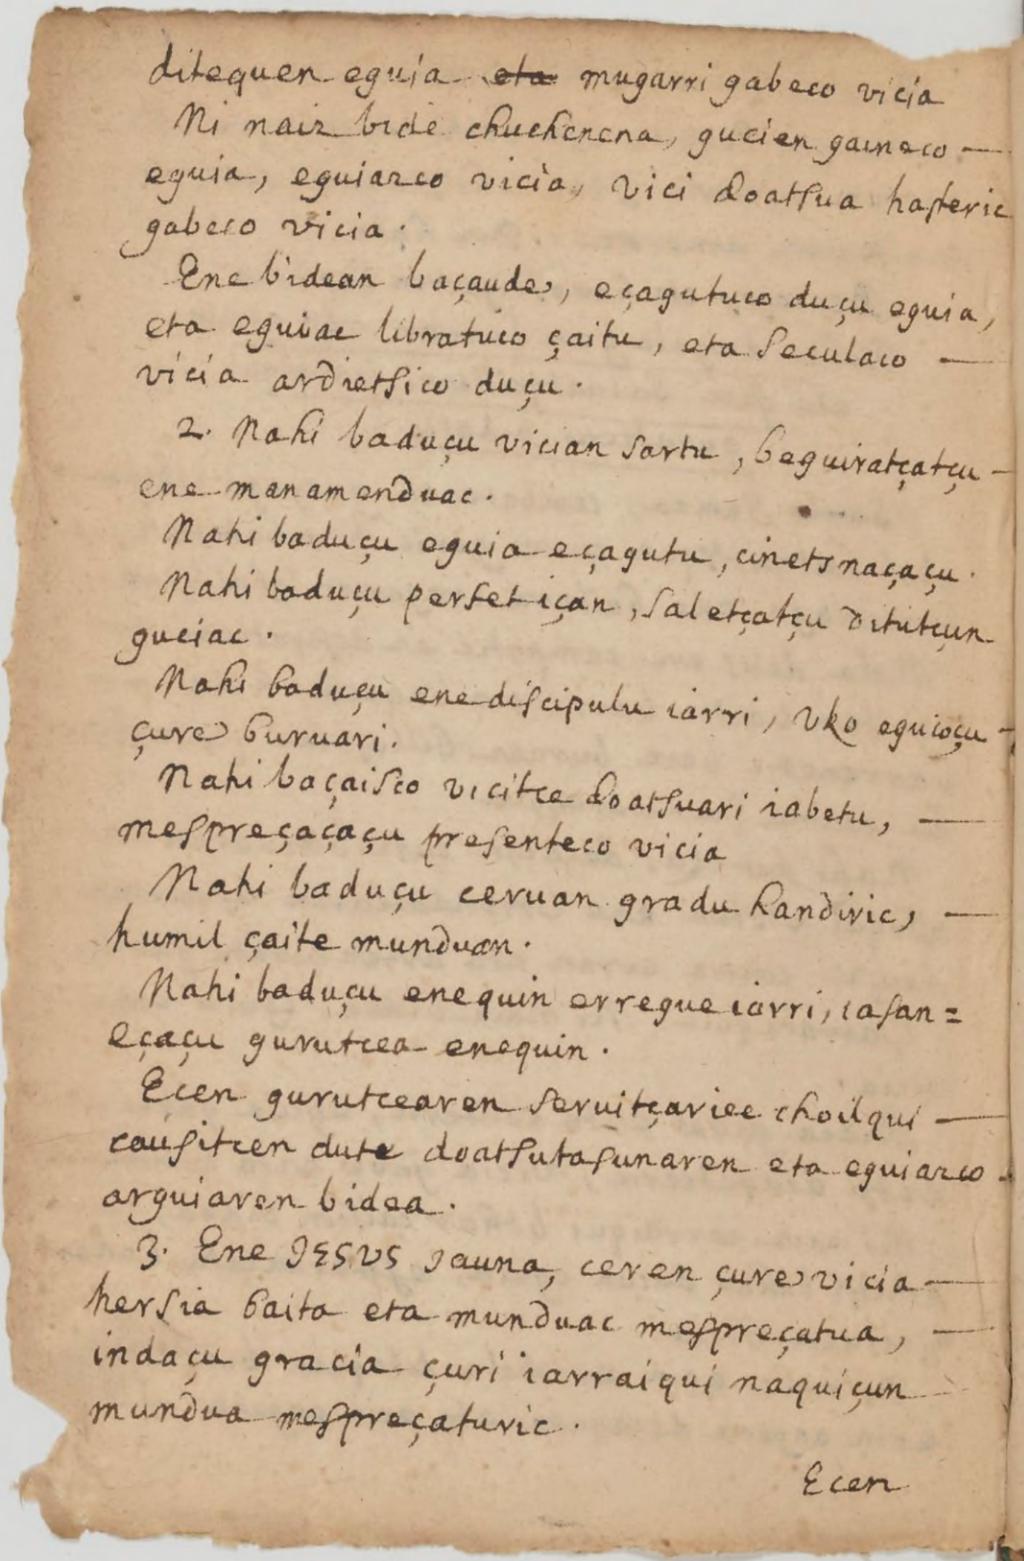 ditequen eguia eta mugarri gabeco vicia
Ni naiz bide chuchenena, gucien gaineco —
eguia, eguiazco vicia, vici doatsua hasteric
gabeco vicia.
Ene bidean baçaude, eçagutuco duçu eguia,
eta eguiac libratuco çaitu, eta seculaco —
vicia ardietsico duçu.
2. Nahi baduçu vician sartu, beguiratçatçu —
ene manamenduac.
Nahi baduçu eguia eçagutu, cinets naçaçu.
Nahi baduçu perfet içan, saletçatçu ditutçun
guciac.
Nahi baduçu ene discipulu iarri, vko eguioçu —
çure buruari.
Nahi baçaisco vicitce doatsuari iabetu, —
mespreçaçaçu presenteco vicia
Nahi baduçu ceruan gradu handiric, —
humil çaite munduan.
Nahi baduçu enequin erregue iarri, iasan=
eçaçu gurutcea enequin.
Ecen gurutcearen seruitçariec choilqui —
causitcen dute doatsutasunaren eta eguiazco -
arguiaren bidea.
3. Ene JESVS Jauna, ceren çure vicia —
hersia baita eta munduac mespreçatua, —
indaçu gracia çuri iarraiqui naquiçun
mundua mespreçaturic.
Ecen